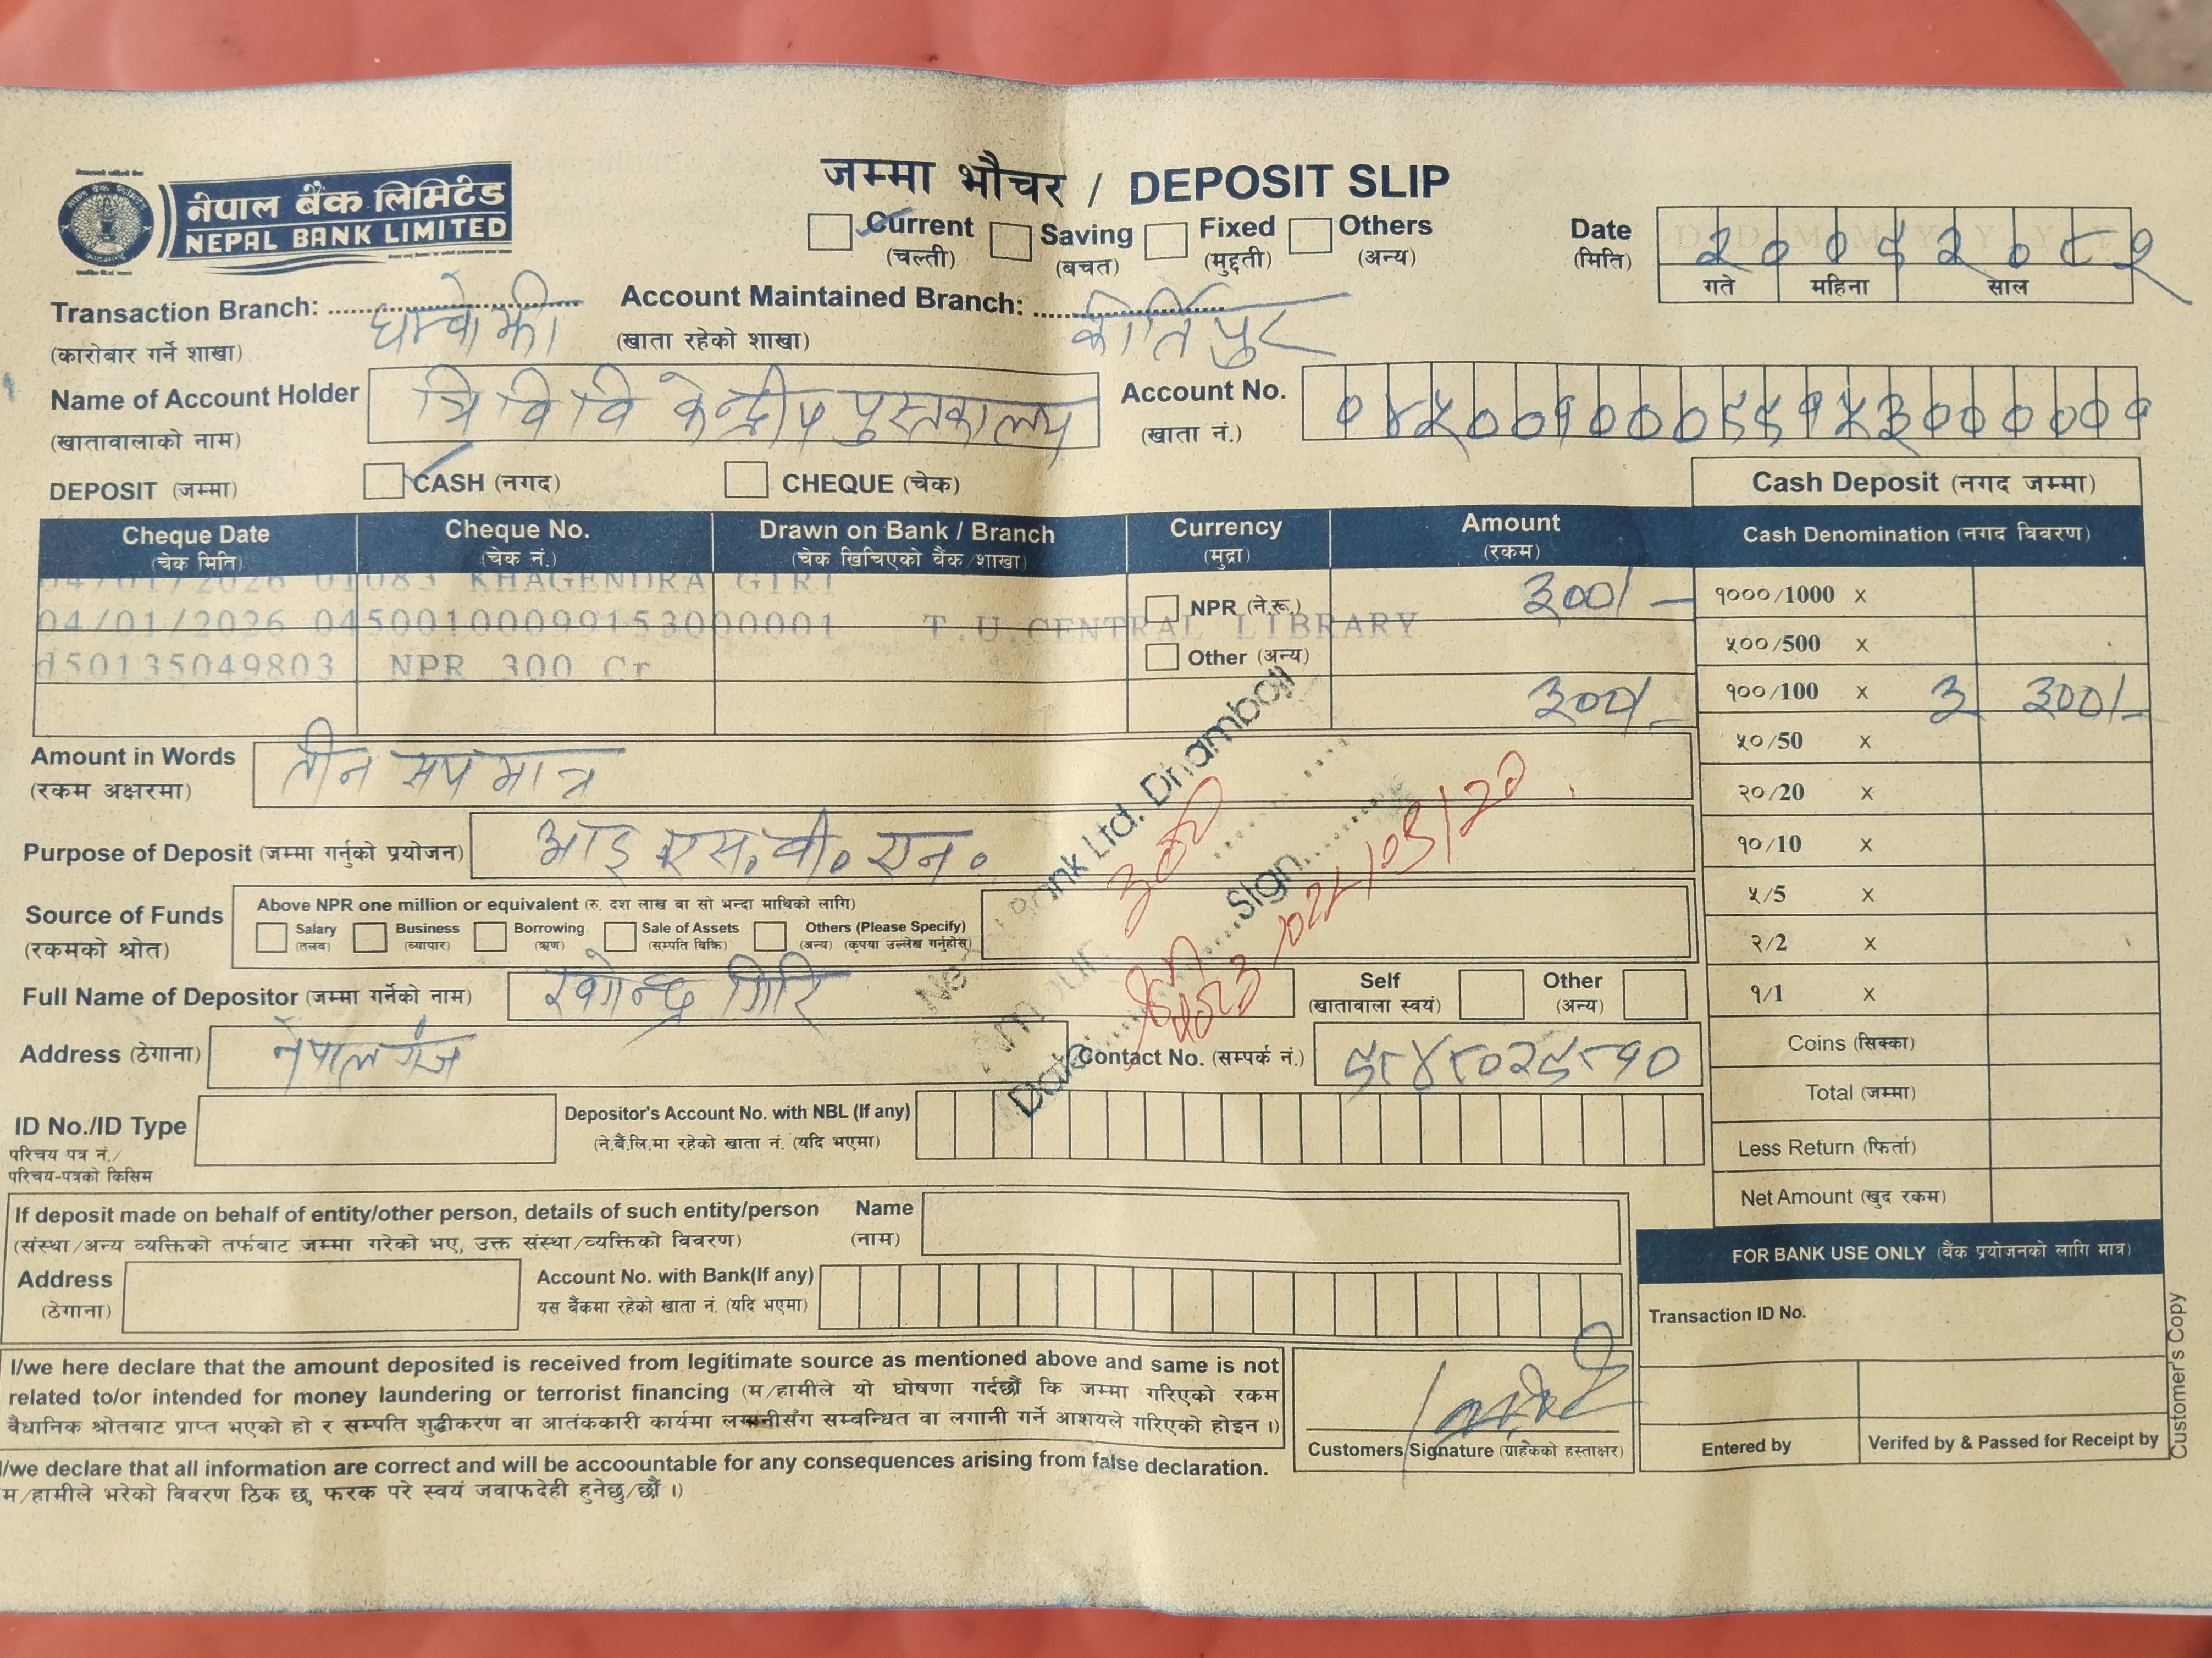 जम्मा भौचर / DEPOSIT SLIP
नेपाल बैंक लिमिटेड
NEPAL BANK LIMITED
Current Saving Fixed Others
(चल्ती) (बचत) (मुद्दती) (अन्य)
Date २० ०९ २०८२
(मिति) गते महिना साल
Transaction Branch: धम्बोझी Account Maintained Branch: कीर्तिपुर
(कारोबार गर्ने शाखा) (खाता रहेको शाखा)
Name of Account Holder त्रि वि वि केन्द्रीय पुस्तकालय Account No.
(खातावालाको नाम) (खाता नं.)
DEPOSIT (जम्मा) CASH (नगद) CHEQUE (चेक) Cash Deposit (नगद जम्मा)
Cheque Date Cheque No. Drawn on Bank / Branch Currency Amount Cash Denomination (नगद विवरण)
(चेक मिति) (चेक नं.) (चेक खिचिएको बैंक/शाखा) (मुद्रा) (रकम)
04/01/2026 01083 KHAGENDRA GIRI
NPR (ने.रू.) ३००/- १०००/1000 x
04/01/2026 04500100099153000001 T.U.CENTRAL LIBRARY
५००/500 x
d50135049803 NPR 300 Cr Other (अन्य)
३००/- १००/100 x ३ ३००/-
Amount in Words तीन सय मात्र ५०/50 x
(रकम अक्षरमा) २०/20 x
Purpose of Deposit (जम्मा गर्नुको प्रयोजन) आइ एस. बी. एन. १०/10 x
Source of Funds Above NPR one million or equivalent (रु. दश लाख वा सो भन्दा माथिको लागि) ५/5 x
(रकमको श्रोत) Salary Business Borrowing Sale of Assets Others (Please Specify) २/2 x
(तलब) (व्यापार) (ऋण) (सम्पति बिक्रि) (अन्य) (कृपया उल्लेख गर्नुहोस्)
Bank Ltd. Dhamboji
३००
Sign
Date
Full Name of Depositor (जम्मा गर्नेको नाम) खगेन्द्र गिरि Self Other १/1 x
(खातावाला स्वयं) (अन्य)
Address (ठेगाना) नेपालगंज Contact No. (सम्पर्क नं.) ९८४८०२९८१० Coins (सिक्का)
Total (जम्मा)
ID No./ID Type Depositor's Account No. with NBL (If any)
परिचय पत्र नं./ (ने.बैं.लि.मा रहेको खाता नं. (यदि भएमा) Less Return (फिर्ता)
परिचय-पत्रको किसिम
Net Amount (खुद रकम)
If deposit made on behalf of entity/other person, details of such entity/person Name
(संस्था/अन्य व्यक्तिको तर्फबाट जम्मा गरेको भए, उक्त संस्था/व्यक्तिको विवरण) (नाम)
FOR BANK USE ONLY (बैंक प्रयोजनको लागि मात्र)
Address Account No. with Bank(If any)
(ठेगाना) यस बैंकमा रहेको खाता नं. (यदि भएमा)
Transaction ID No.
I/we here declare that the amount deposited is received from legitimate source as mentioned above and same is not
related to/or intended for money laundering or terrorist financing (म/हामीले यो घोषणा गर्दछौं कि जम्मा गरिएको रकम
वैधानिक श्रोतबाट प्राप्त भएको हो र सम्पति शुद्धीकरण वा आतंककारी कार्यमा लगानीसँग सम्बन्धित वा लगानी गर्ने आशयले गरिएको होइन ।)
Customers Signature (ग्राहकको हस्ताक्षर) Entered by Verifed by & Passed for Receipt by
I/we declare that all information are correct and will be accoountable for any consequences arising from false declaration.
म/हामीले भरेको विवरण ठिक छ, फरक परे स्वयं जवाफदेही हुनेछु/छौं ।)
Customer's Copy